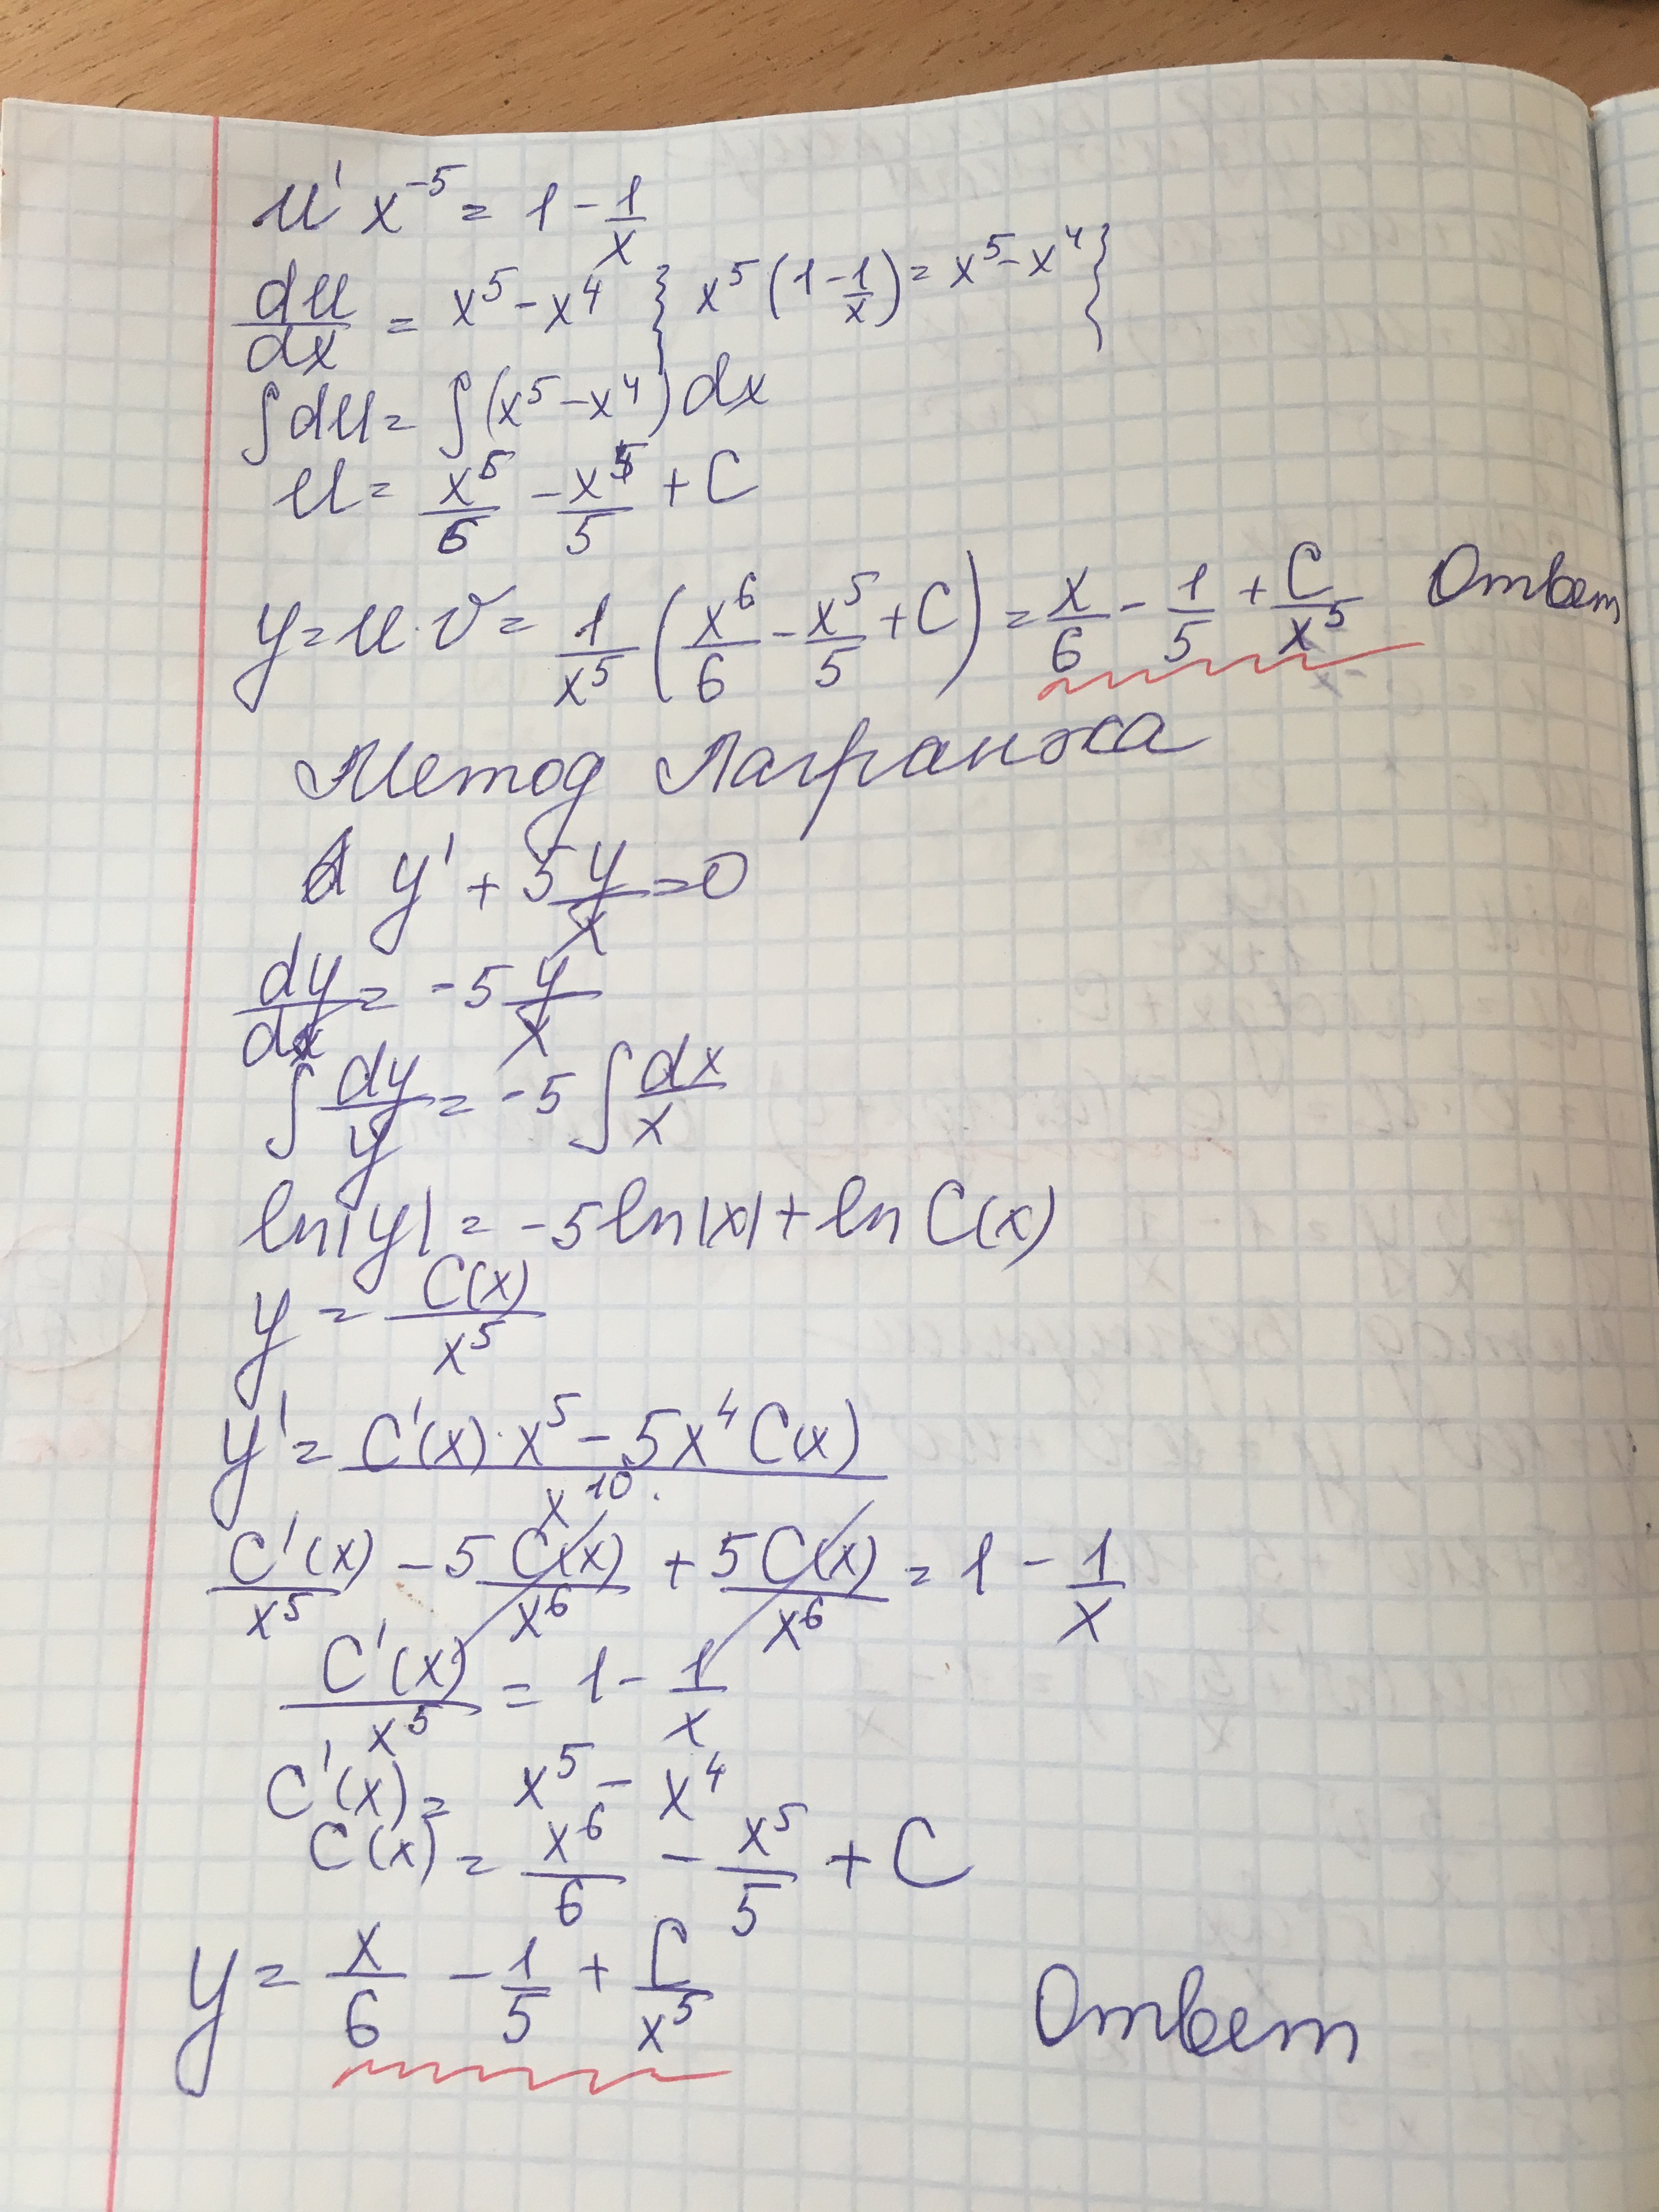 u' x^{-5} = 1 - 1/x
du/dx = x^5 - x^4 } x^5 (1 - 1/x) = x^5 - x^4 }
∫ du = ∫ (x^5 - x^4) dx
u = x^6/6 - x^5/5 + C
y = u · v = 1/x^5 (x^6/6 - x^5/5 + C) = x/6 - 1/5 + C/x^5 Ответ
Метод Лагранжа
y' + 5 y/x = 0
dy/dx = -5 y/x
∫ dy/y = -5 ∫ dx/x
ln|y| = -5 ln|x| + ln C(x)
y = C(x)/x^5
y' = (C'(x) · x^5 - 5x^4 C(x))/x^{10}
C'(x)/x^5 - 5 C(x)/x^6 + 5C(x)/x^6 = 1 - 1/x
C'(x)/x^5 = 1 - 1/x
C'(x) = x^5 - x^4
C(x) = x^6/6 - x^5/5 + C
y = x/6 - 1/5 + C/x^5 Ответ